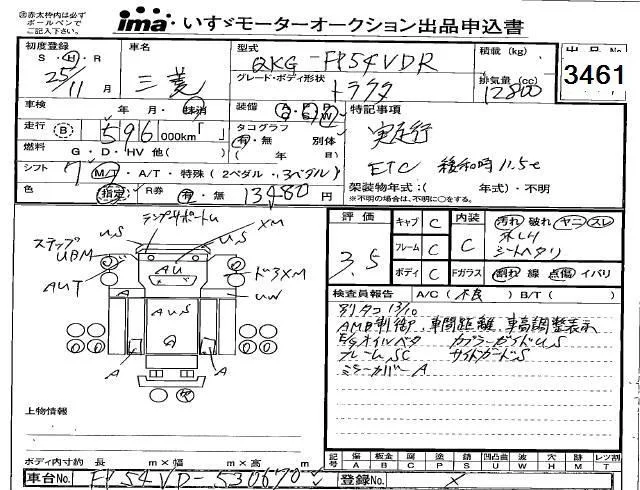 ㊟赤太枠内は必ず
ボールペンで
ご記入下さい。
ima いすゞモーターオークション出品申込書
初度登録
S・H・R
25年
11月
車名
三菱
型式
QKG-FP54VDR
グレード・ボディ形状
トラクタ
積載 (kg)
排気量 (cc)
12800
出品No.
3461
車検
年 月・抹消
装備 A P P A S W
特記事項
走行 (B) 596,000km「 」
タコグラフ
有・無 別体
実走行
燃料 G・D・HV 他( )
シフト 7 M/T・A/T・特殊(2ペダル・3ペダル)
ETC 緩和時11.5t
色 指定 R券 有・無 13480円
架装物年式:( 年式)・不明
※不明の場合は、不明に○をする。
評価
3.5
キャブ C
フレーム C
ボディ C
内装
C
汚れ 破れ ヤニ スレ
シートヘタリ
Fガラス 割れ 線 点傷 イバリ
検査員報告 A/C(不良) B/T( )
別タコ 13/10
AMB制御、車間距離、車高調整表示
E/Gオイルベタ カプラーガイドUS
フレームSC サイドガードS
ミラーカバーA
ランプサポートU
US
XM
US
ステップ
UBM
AU
ドアXM
AUT
UW
A
AUS
A
G
A
A
上物情報
ボディ内寸約 長 m×幅 m×高 m
記号 傷 A 板金 B 腐 C 塗 T 錆 S 凹凸曲 U 波 W 穴 H 跡 M レツ割 T
車台No. FP54VD-530670
登録No. ×